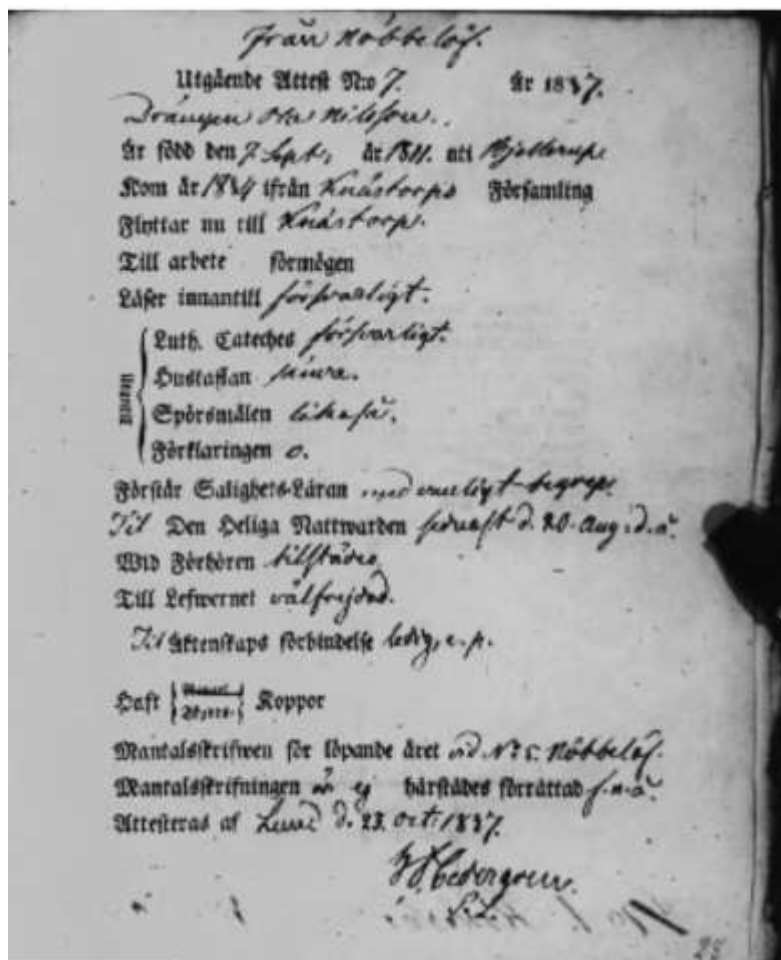 Från Nöbbelöf.
Utgående Attest N:o 7. År 1837.
Drängen Ola Nilsson.
Är född den 7 Sept, år 1811. uti Bjellerup.
Kom år 1834 ifrån Knästorps Församling
Flyttar nu till Knästorp.
Till arbete förmögen
Läser innantill försvarligt.
Utantill
Luth. Cateches försvarligt.
Hustaflan
Spörsmålen likaså.
Förklaringen o.
Förstår Salighets-Läran med vanligt begrep.
Til Den Heliga Nattwarden senast d. 20. Aug. d. å.
Wid Förhören tilstädes
Till Lefwernet välfrejdad.
Til Äktenskaps förbindelse ledig,
Haft Koppor
Mantalsskrifwen för löpande året vid N:o 5. Nöbbelöf.
Mantalsskrifningen är ej härstädes förrättad f. n. å.
Attesteras af Lund d. 23. Oct. 1837.
28